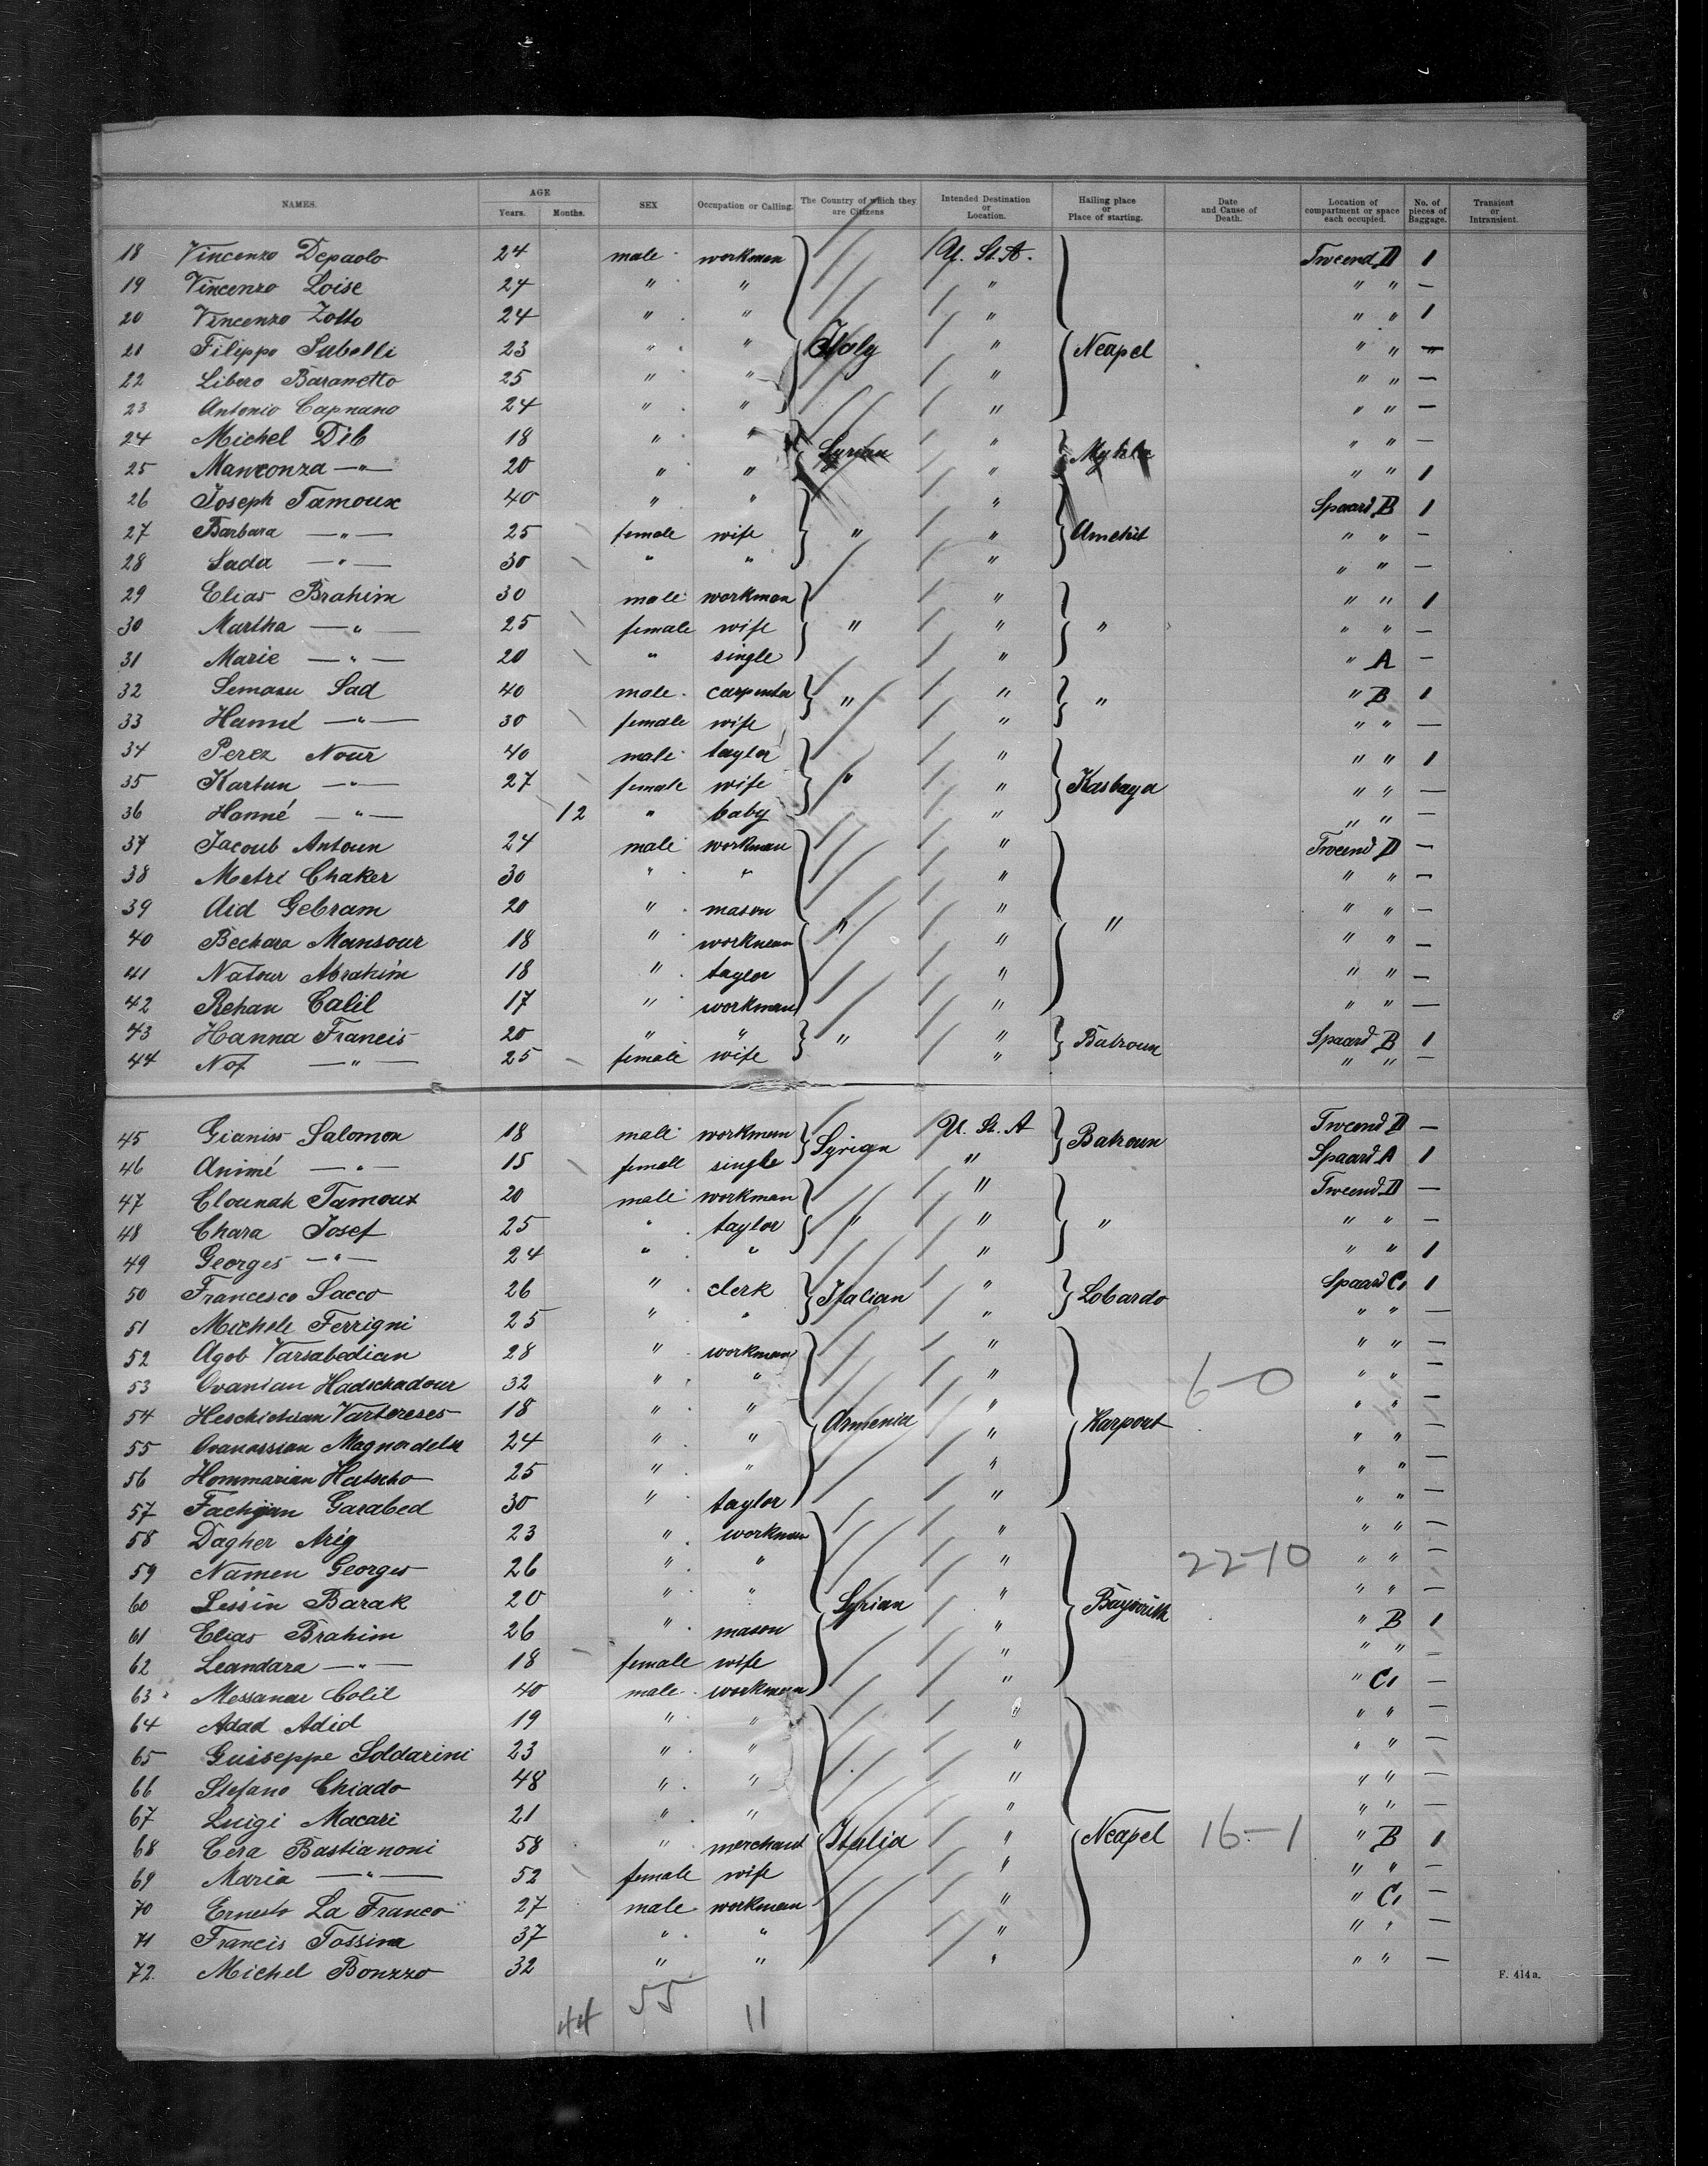 NAMES. AGE Years. Months. SEX Occupation or Calling. The Country of which they are Citizens Intended Destination or Location. Hailing place or Place of starting. Date and Cause of Death. Location of compartment or space each occupied. No. of pieces of Baggage. Transient or Intransient.
18 Vincenzo Depaolo 24 male workman U. St. A. Tweend D 1
19 Vincenzo Loise 24 " " " " " —
20 Vincenzo Zotto 24 " " " " " 1
21 Filippo Sabelli 23 " " Italy " Neapel " " "
22 Libero Baranetto 25 " " " " " —
23 Antonio Capnano 24 " " " " " —
24 Michel Dib 18 " " Syrian " " " —
25 —"— 20 " " " " " 1
26 Joseph Tamoux 40 " " " Spaard B 1
27 Barbara —"— 25 female wife " " Amchit " " —
28 Sada —"— 30 " " " " " —
29 Elias Brahim 30 male workman " " " 1
30 Martha —"— 25 female wife " " " " " —
31 Marie —"— 20 " single " " A —
32 Semaan Sad 40 male carpenter " " " " B 1
33 Hanné —"— 30 female wife " " " —
34 Perez Nour 40 male taylor " " " 1
35 Kartun —"— 27 female wife " " Kasbaya " " —
36 Hanné —"— 12 " baby " " " —
37 Jacoub Antoun 24 male workman " Tweend D —
38 Metri Chaker 30 " " " " " —
39 Aid Gebram 20 " mason " " " —
40 Bechara Mansour 18 " workman " " " " " —
41 Natour Abrahim 18 " taylor " " " —
42 Rehan Calil 17 " workman " " " —
43 Hanna Francis 20 " " " " Batroun Spaard B 1
44 Nof —"— 25 female wife " " " —
45 Gianiss Salomon 18 male workman Syrian U. St. A Batroun Tweend D —
46 Animé —"— 15 female single " Spaard A 1
47 Clounak Tamoux 20 male workman " Tweend D —
48 Chara Josef 25 " taylor " " " " " —
49 Georges —"— 24 " " " " " 1
50 Francesco Sacco 26 " clerk Italian " Lobardo Spaard C 1
51 Michele Ferrigni 25 " " " " " —
52 Agob Varsabedian 28 " workman " " " —
53 Ovanian Hadschadour 32 " " " 6-0 " " —
54 Heschichian Vartereses 18 " " Armenia " Karport " " —
55 Ovanossian 24 " " " " " —
56 Hommarian Hatscho 25 " " " " " —
57 Garabed 30 " taylor " " " —
58 Dagher 23 " workman " " " —
59 Namen Georges 26 " " " 22-10 " " —
60 Lissin Barak 20 " " Syrian " " " —
61 Elias Brahim 26 " mason " " B 1
62 Leandara —"— 18 female wife " " " —
63 Colil 40 male workman " " C —
64 Adad Adid 19 " " " " " —
65 Guiseppe Soldarini 23 " " " " " —
66 Stefano Chiado 48 " " " " " —
67 Luigi Macari 21 " " " " " —
68 Cera Bastianoni 58 " merchant Italia " Neapel 16-1 " B 1
69 Maria —"— 52 female wife " " " —
70 Ernesto La Franco 27 male workman " " C —
71 Francis Tossina 37 " " " " " —
72. Michel Bonzzo 32 " " " " " —
F. 414 a.
44 55 11